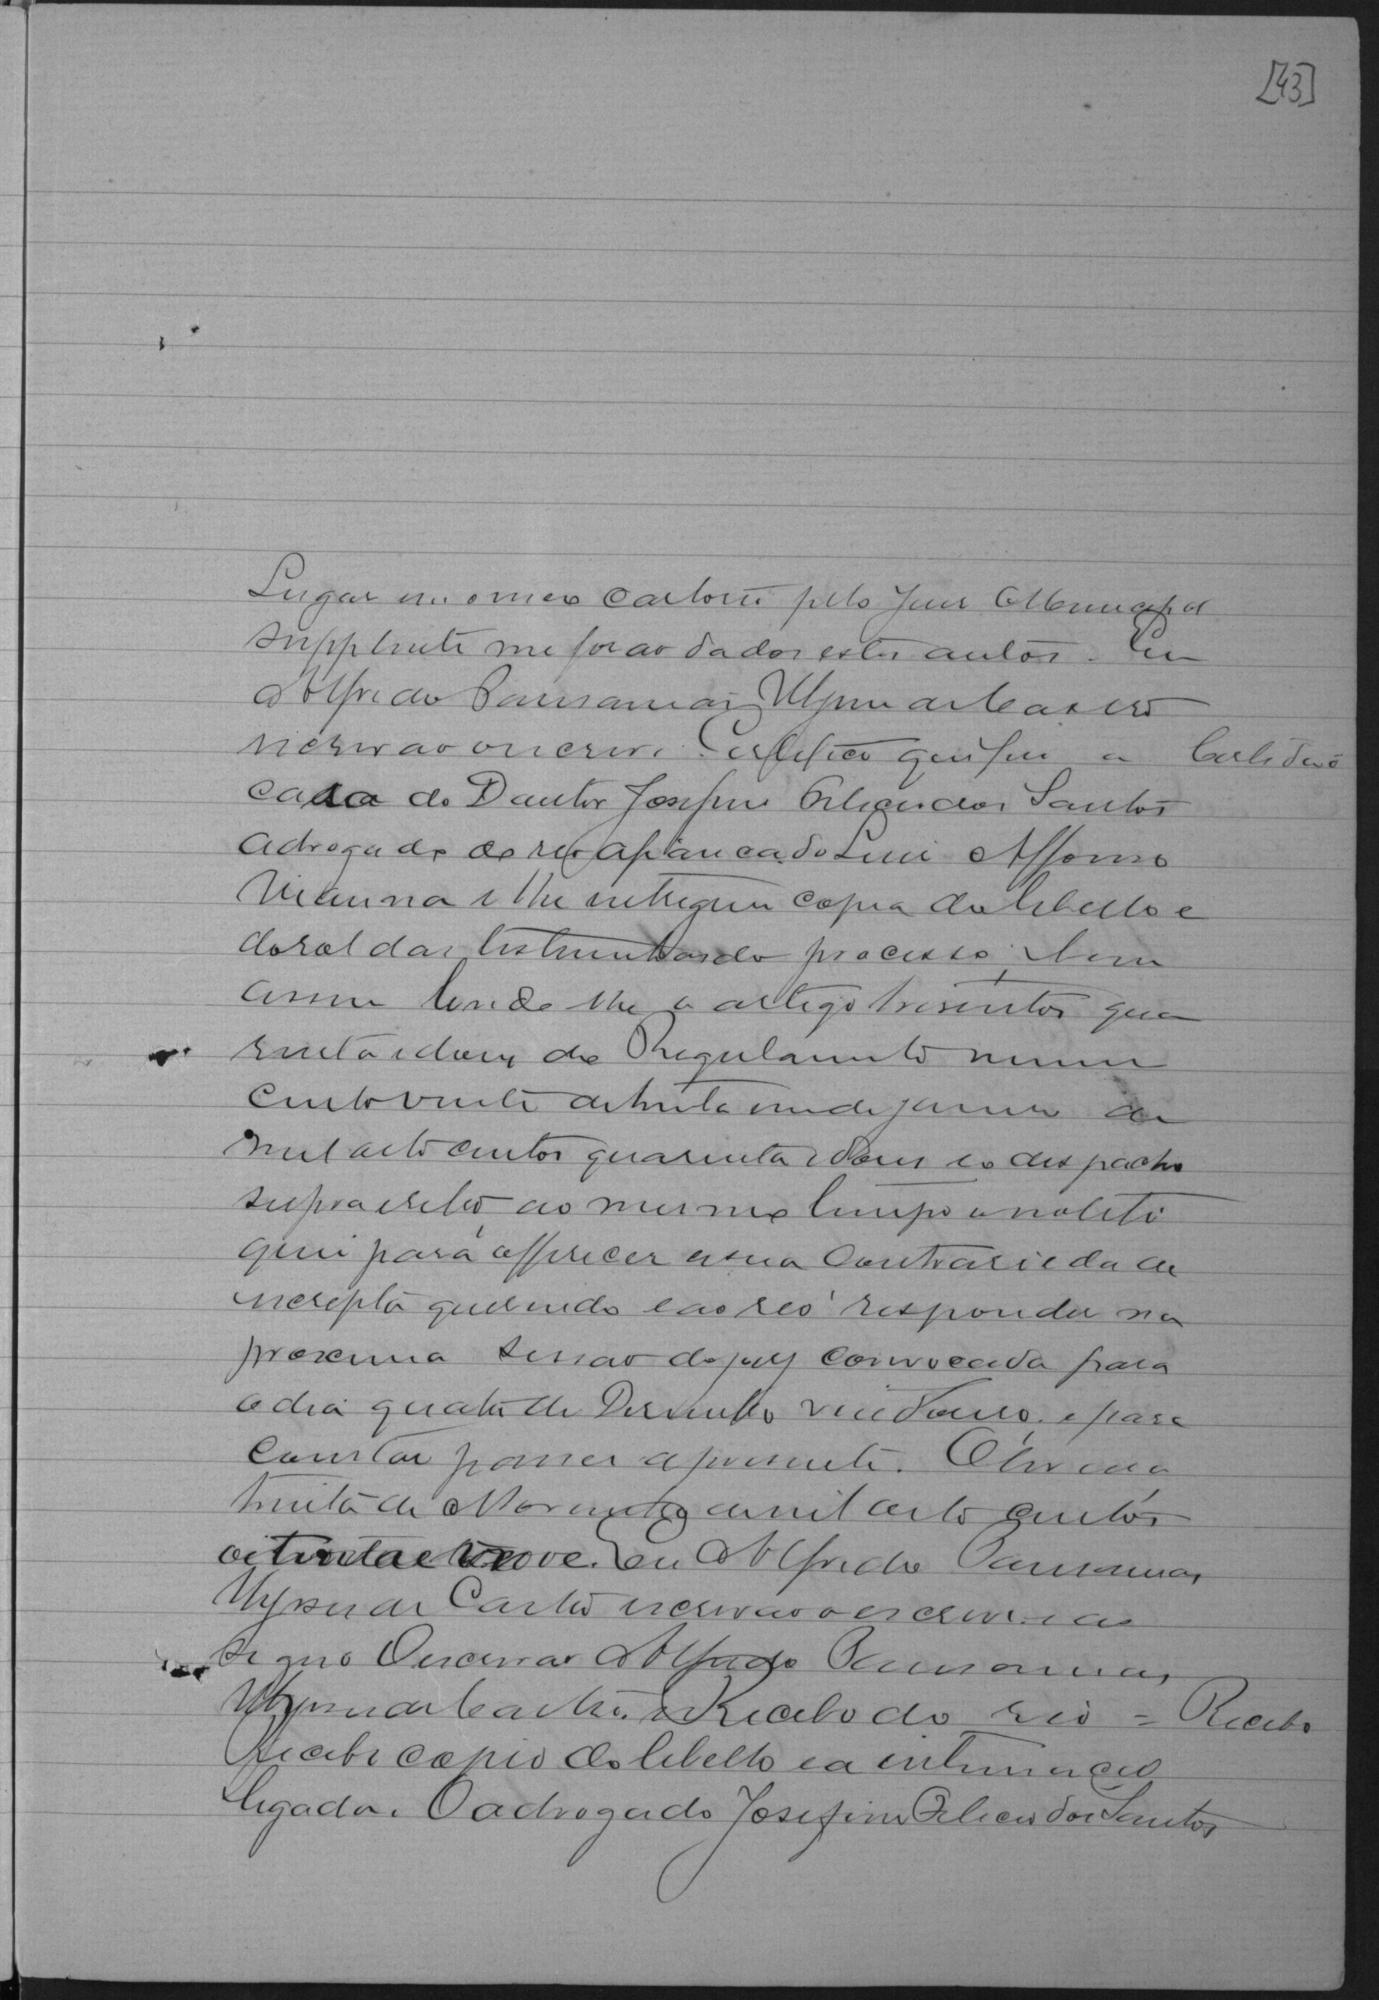 [43]
Lugar em o meu cartorio pelo Juiz Municipal
supplente me forão dados estes autos. Eu
Alfredo Pausanias de Castro
escrivão o escrevi. Certifico que fui a Certidão
casa do Doutor Josefino Felicio dos Santos
advogado do reo afiançado Luis Affonso
Vianna e lhe entreguei copia do libello e
do rol das testemunhas do processo, bem
assim lendo lhe o artigo tresentos qua
renta e dous do Regulamento numero
cento vinte de trinta e um de janeiro de
mil oito centos quarenta e dous e o despacho
supra e retro ao mesmo tempo o notifi
quei para offerecer a sua contrariedade
escripta querendo e ao reo responder na
proxima sessão do jury convocada para
o dia quatro de Dezembro vindouro. e para
constar passei a presente. Oliveira
trinta de Novembro de mil oito centos
oitenta e nove. Eu Alfredo Pausanias
de Castro escrivão o escrevi e as
signo O escrivão Alfredo Pausanias
de Castro. Recibo do reo = Recibo
Recebi copia do libello e a intimação
legada. O advogado Josefino Felicio dos Santos